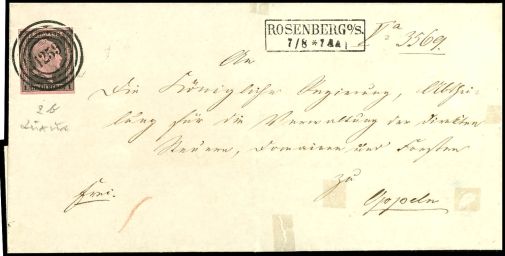 ROSENBERG O/S.
7/8 * 7
3569.
1255
An
Die Königliche Regierung, Abthei-
lung für die Verwaltung der direkten
Steuern, Domainen und Forsten
zu
frei.
Oppeln